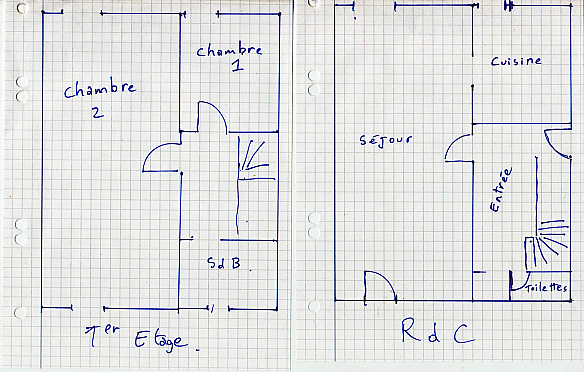 Chambre
1
Chambre
2
SdB
1er Etage.
Cuisine
Séjour
Entrée
Toilettes
R d C